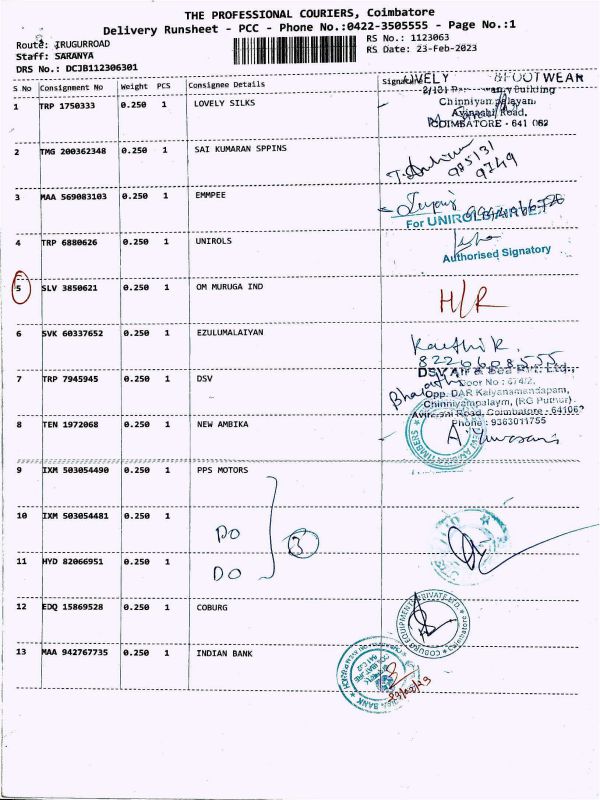 THE PROFESSIONAL COURIERS, Coimbatore
Delivery Runsheet - PCC - Phone No.:0422-3505555 - Page No.:1
Route: IRUGURROAD
RS No.: 1123063
Staff: SARANYA
RS Date: 23-feb-2023
DRS No.: DCJB112306301
S No Consignment No Weight PCS Consignee Details Signature
LOVELY FOOTWEAR
Building
Chinniyam palayam
Avinashi Road,
COIMBATORE - 641 062
1 TRP 1750333 0.250 1 LOVELY SILKS
2 TMG 200362348 0.250 1 SAI KUMARAN SPPINS
985131
9749
3 MAA 569083103 0.250 1 EMMPEE
For UNIROLS
4 TRP 6880626 0.250 1 UNIROLS
Authorised Signatory
5 SLV 3850621 0.250 1 OM MURUGA IND H/R
6 SVK 60337652 0.250 1 EZULUMALAIYAN
Karthik.
8220608555
7 TRP 7945945 0.250 1 DSV
DSV Air & Sea Pvt. Ltd.,
Door No : 674/2,
Opp. DAR Kalyanamandapam,
Chinniyampalaym, (RG Puthur)
Avinashi Road, Coimbatore - 641062
Phone : 9363011755
8 TEN 1972068 0.250 1 NEW AMBIKA
9 IXM 503054490 0.250 1 PPS MOTORS
10 IXM 503054481 0.250 1 DO
3
11 HYD 82066951 0.250 1 DO
12 EDQ 15869528 0.250 1 COBURG
COBURG EQUIPMENTS PRIVATE LTD.
Coimbatore
13 MAA 942767735 0.250 1 INDIAN BANK
23/02/23